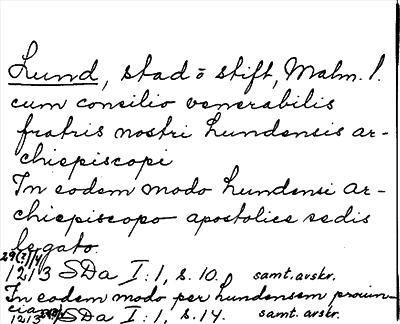 Lund, stad o stift, Malm. l.
cum consilio venerabilis
fratris nostri Lundensis ar-
chiepiscopi
In eodem modo Lundensi ar-
chiepiscopo apostolice sedis
legato
29(?)/4
1213 SDa I:1, s. 10. samt. avskr.
In eodem modo per Lundensem provin-
ciam
1213 SDa I:1, s. 14. samt. avskr.